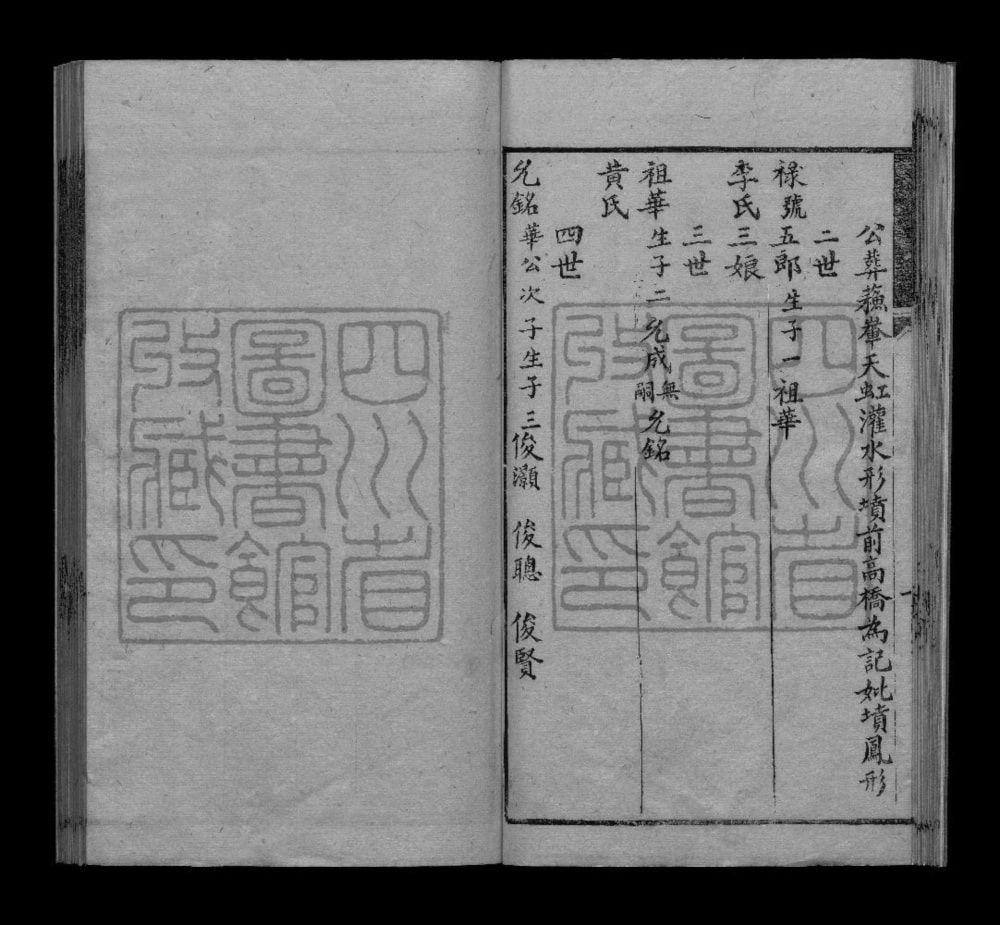 公葬蘓輋天虹灌水形墳前高橋為記妣墳鳳形
二世
禄號五郎生子一祖華
李氏三娘
三世
祖華生子二允成無嗣允銘
黄氏
四世
允銘華公次子生子三俊灝 俊聰 俊賢
四川省
圖書館
改藏印
四川省
圖書館
改藏印